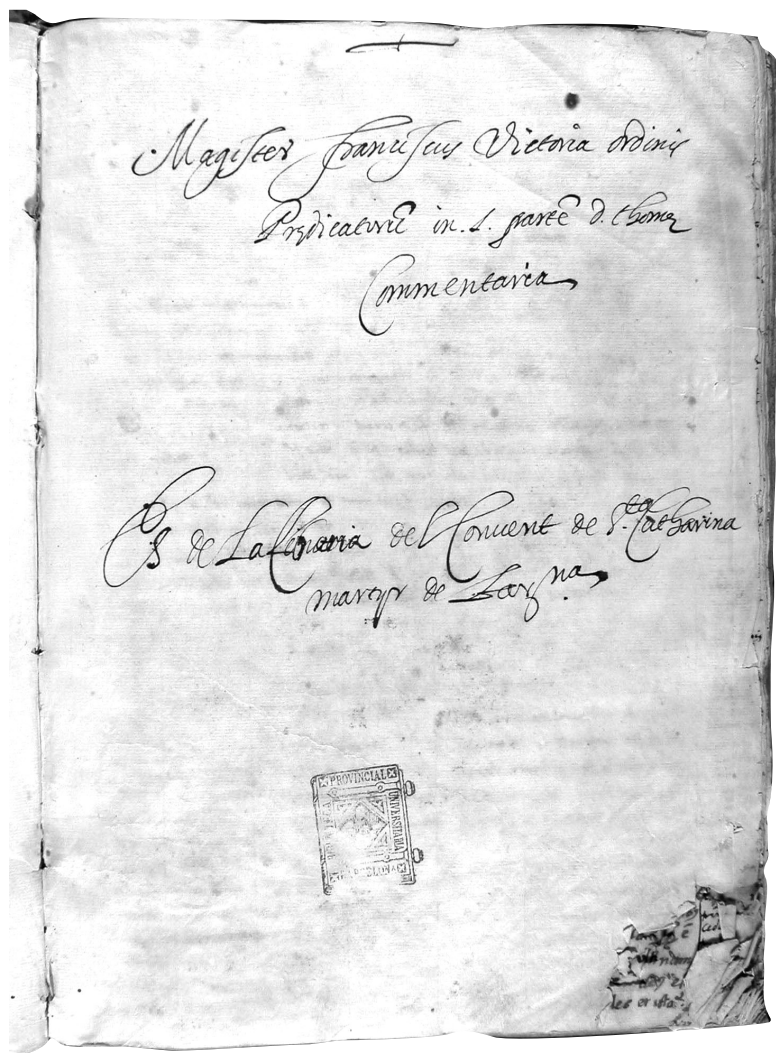 Magister franciscus Victoria ordinis
Prędicatorū in .1. partē d. thomę
Commentaria
Es de la libraria del Convent de S.ta Catharina
martyr de Barna.
PROVINCIAL
UNIVERSITARIA